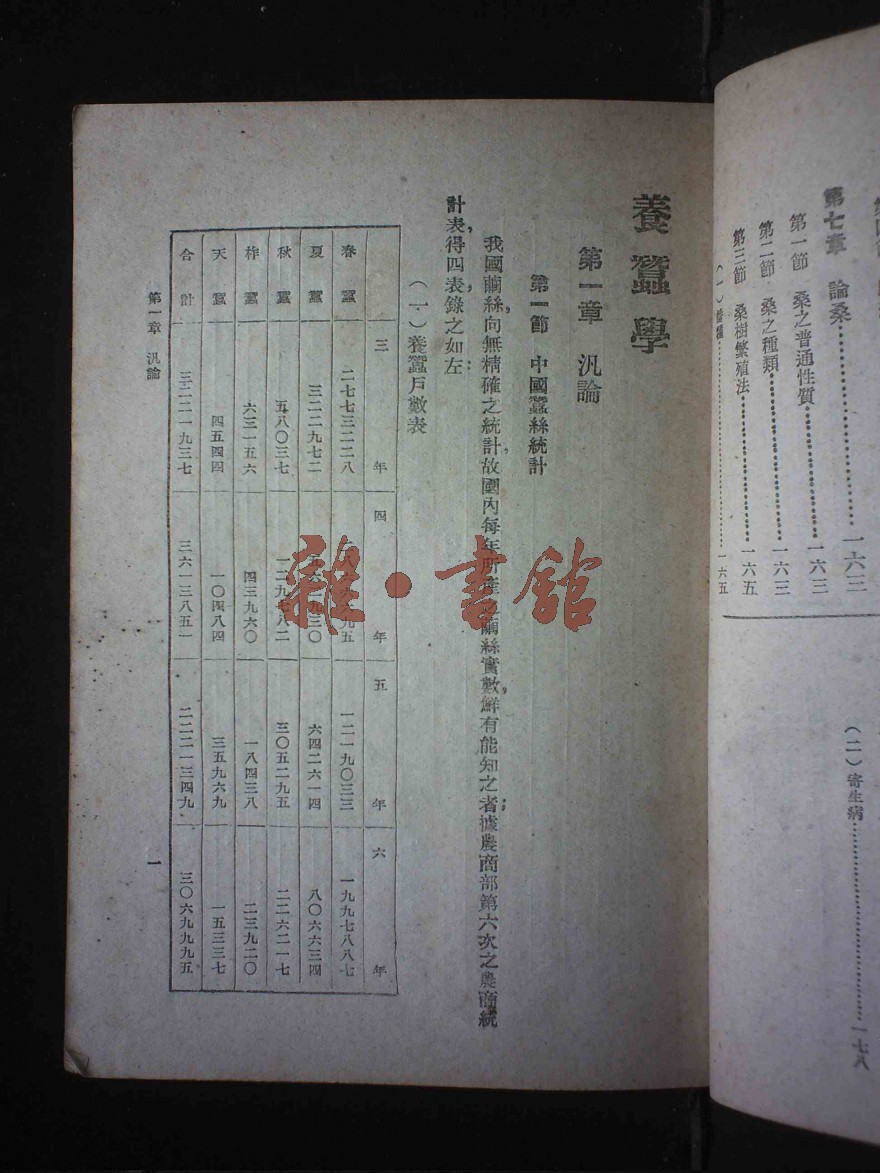 第七章 論桑……一六三
第一節 桑之普通性質……一六三
第二節 桑之種類……一六三
第三節 桑樹繁殖法……一六五
一六五
（二）寄生病……一七八
養蠶學
第一章 汎論
第一節 中國蠶絲統計
我國繭絲，向無精確之統計，故國內每年所產之繭絲實數，鮮有能知之者；據農商部第六次之農商統
計表，得四表，錄之如左：
（一）養蠶戶數表
三年 四年 五年 六年
春蠶 二七七三二二八 一二一九〇三三 一九九七八八七
夏蠶 三二二九七二 六四二六一四 八〇六六三四
秋蠶 五八〇三七 一二九七八二 三〇五二九五 二二六二一七
柞蠶 六三一五六 四三九六〇 一八四三八 二三九二〇
天蠶 四五四四 一〇四八四 三五九六九 一五三三七
合計 三二二一九三七 三六一三八五一 二二二一三四九 三〇六九九九五
第一章 汎論
一
雜·書館